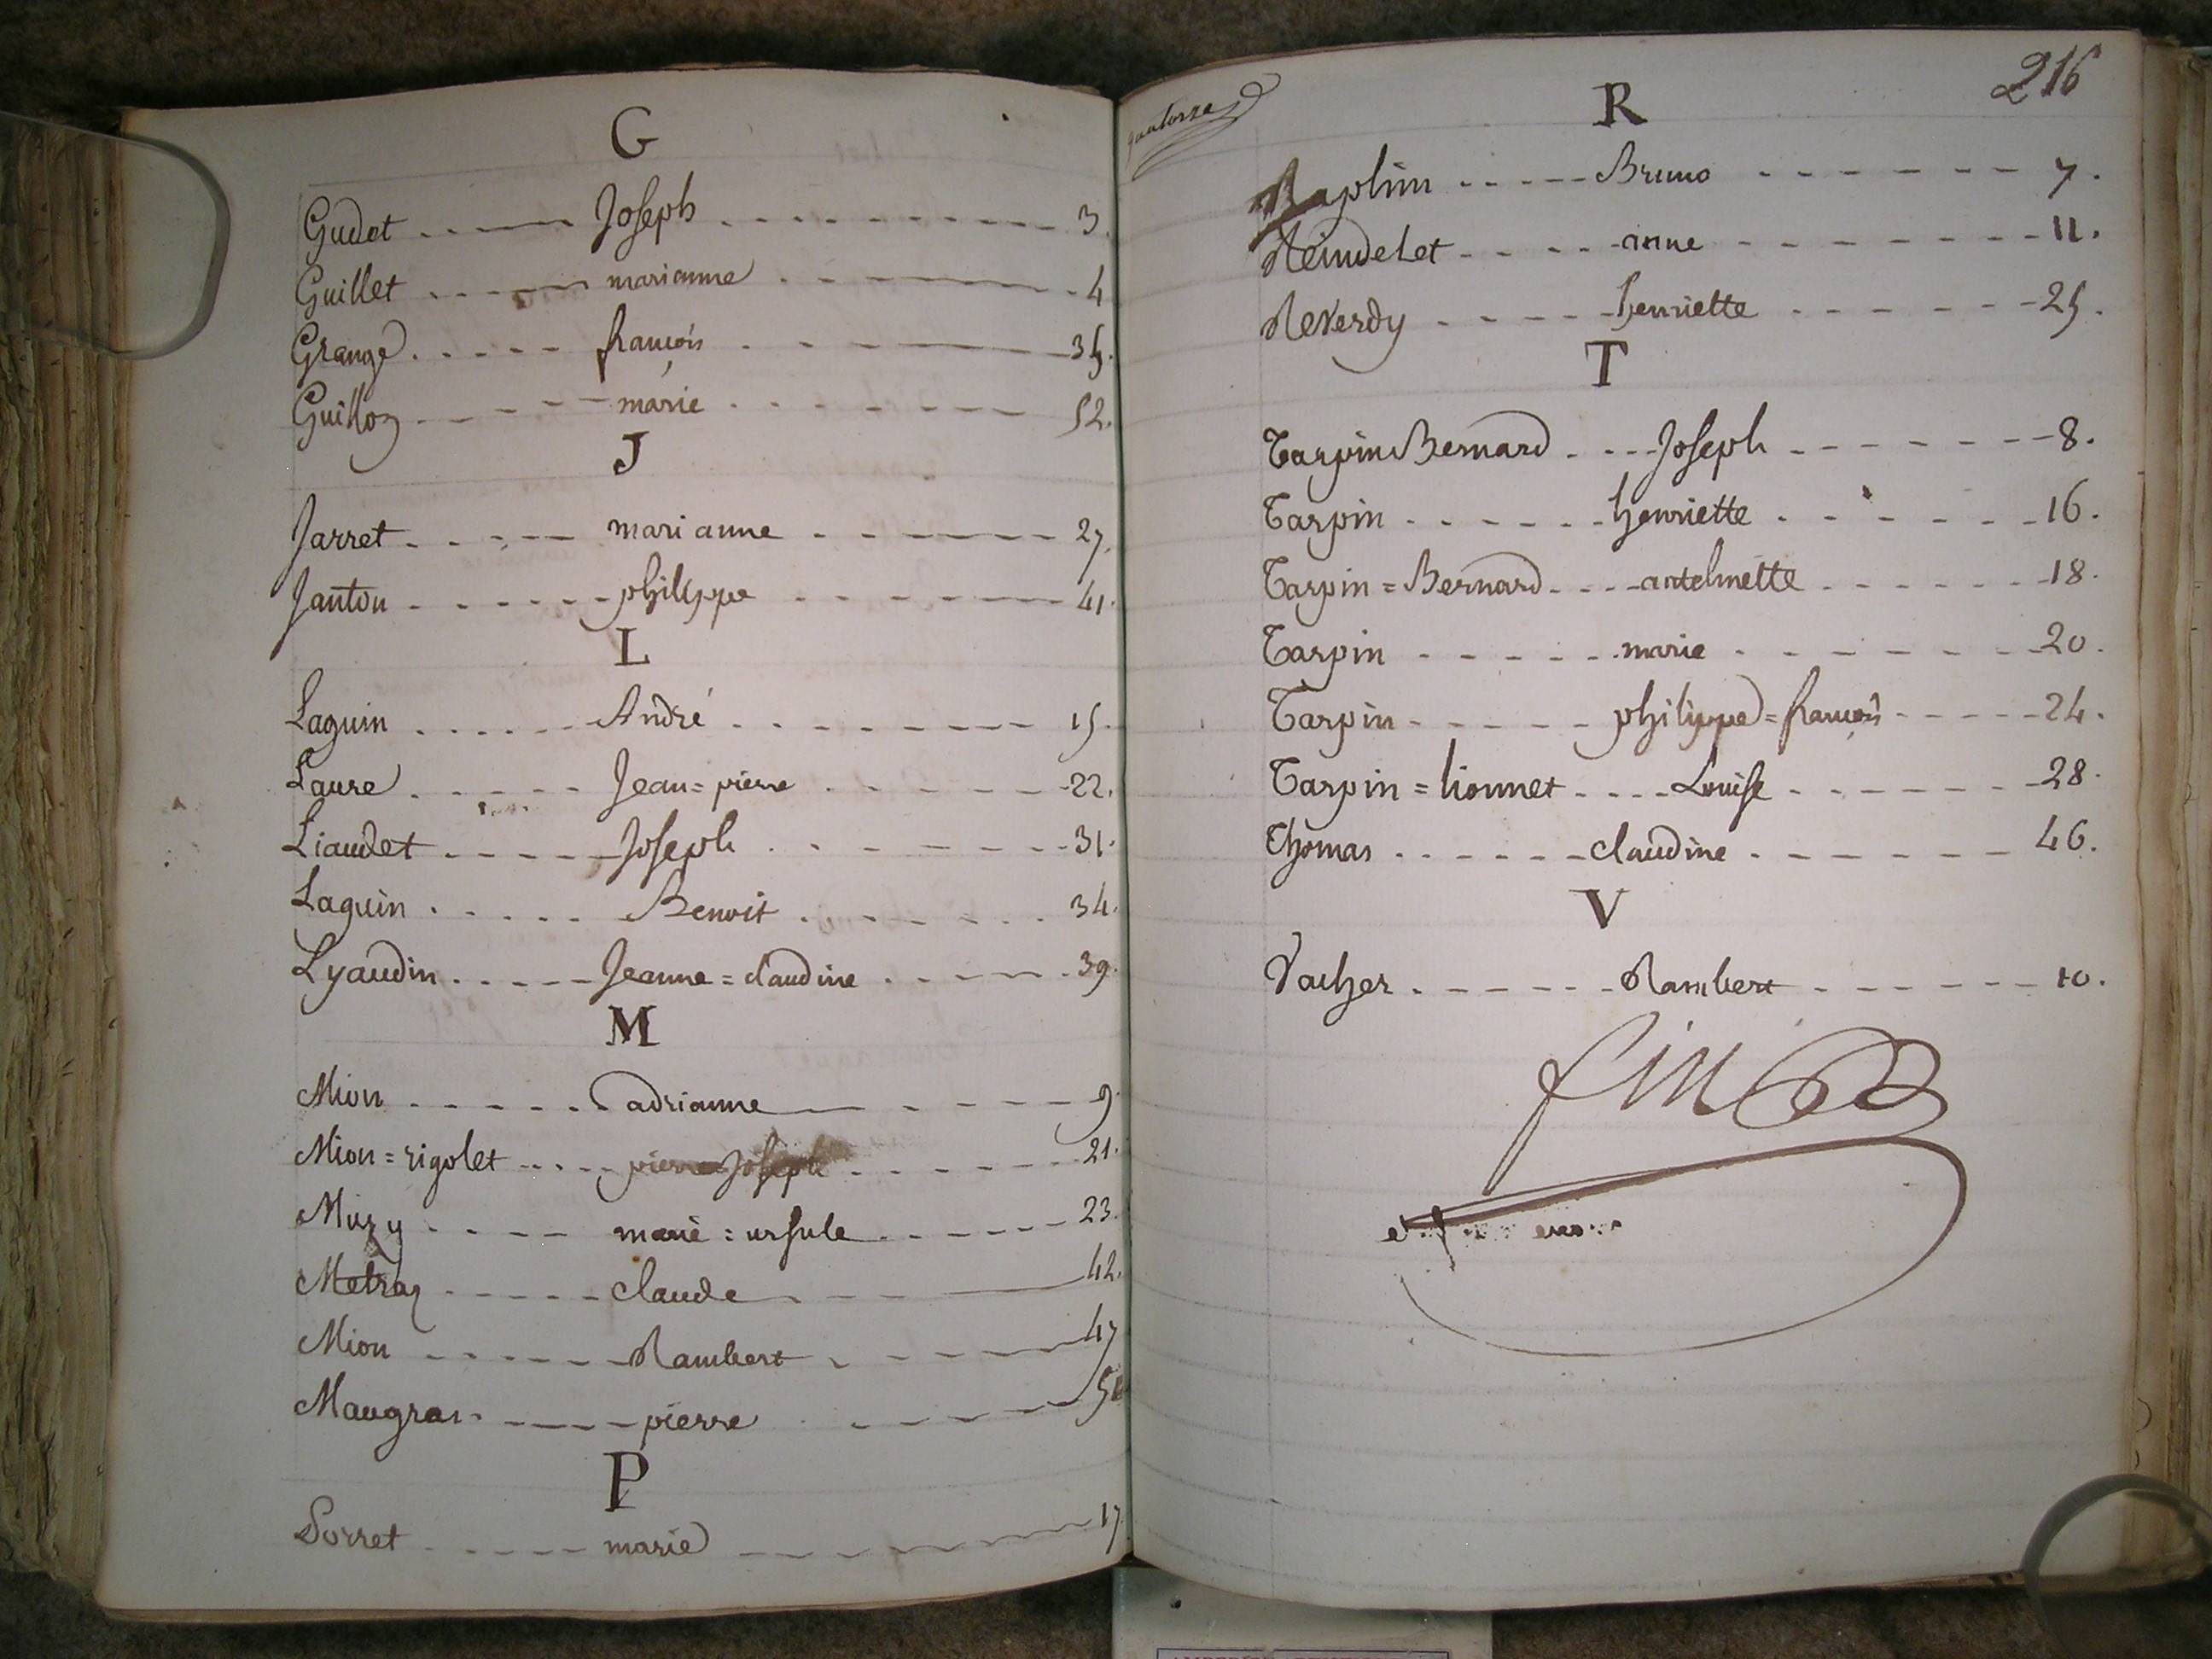 G
Gudet Joseph 3.
Guillet marianne 4
Grange françois 35.
Guilloz marie 52.
J
Jarret marianne 27.
Janton philippe 41.
L
Laguin André 15.
Laure Jean=pierre 22.
Liaudet Joseph 31.
Laguin Benoit 34.
Lyaudin Jeanne=claudine 39.
M
Mion adrianne 9
Mion=rigolet pierre Joseph 21.
Muzy marie=ursule 23.
Metraz claude 42.
Mion Rambert 47
Maugras pierre
P
Porret marie 17
quatorze
216
R
Raplin Bruno 7.
Reindelet anne 11.
Reverdy henriette 25.
T
Tarpin Bernard Joseph 8.
Tarpin henriette 16.
Tarpin=Bernard antelmette 18.
Tarpin marie 20.
Tarpin philippe=françois 24.
Tarpin=lionnet Louise 28.
Thomas claudine 46.
V
Vacher Rambert 10.
fin